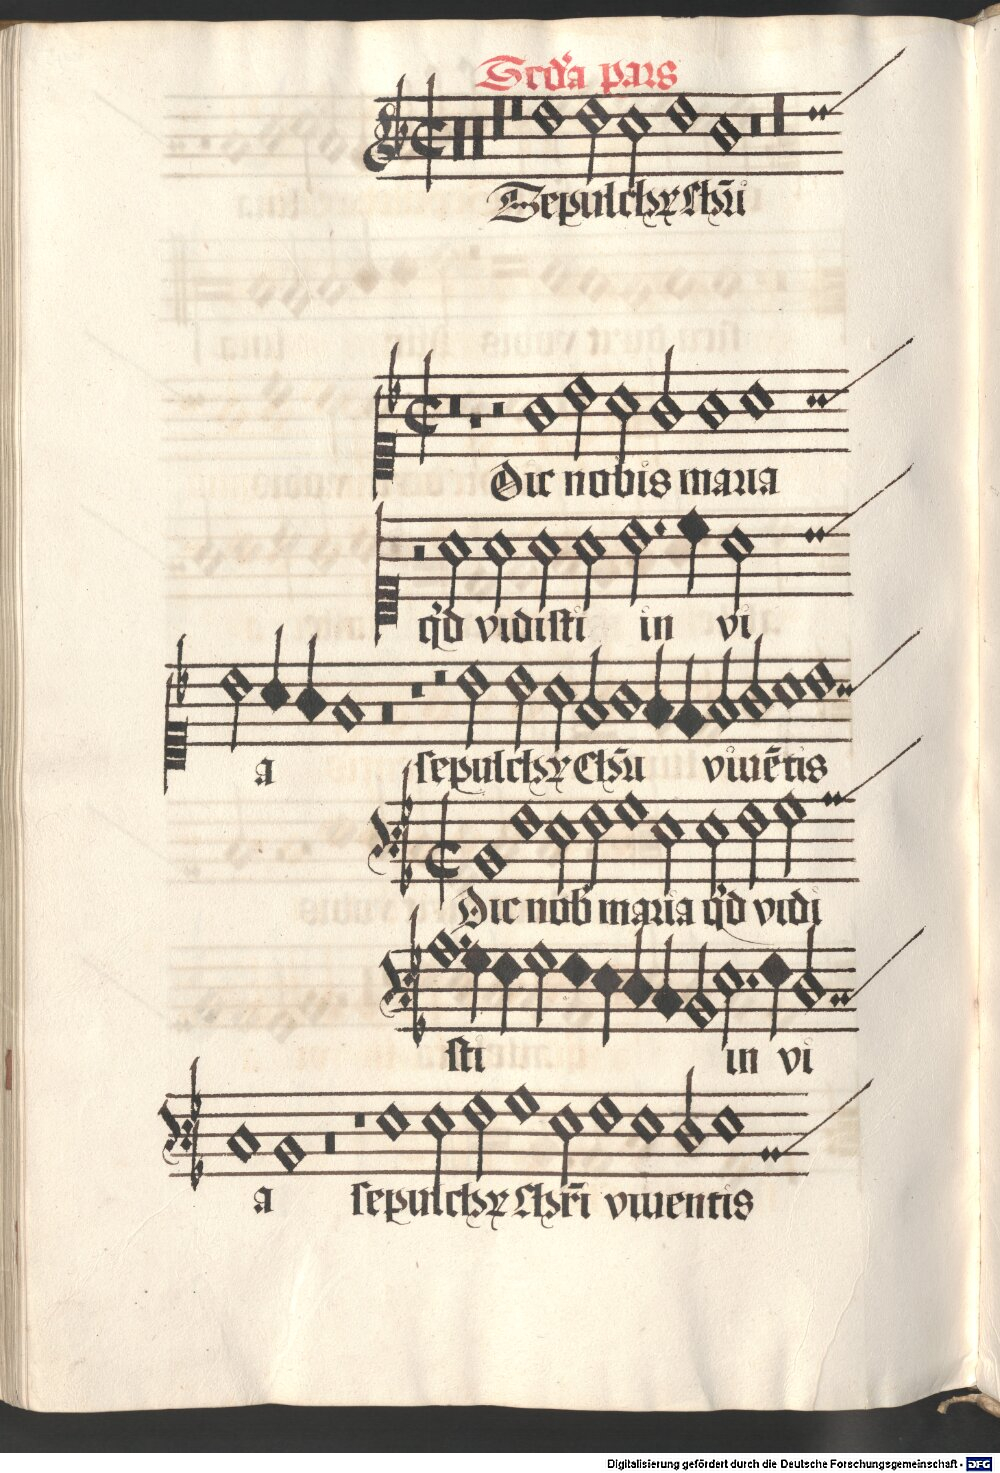 Secda pars
Sepulchrum Chri
Dic nobis maria
qd vidisti in vi
a sepulchrum Chri viuētis
Dic nob maria qd vidi
sti in vi
a sepulchrum Chri viuentis
Digitalisierung gefördert durch die Deutsche Forschungsgemeinschaft - DFG